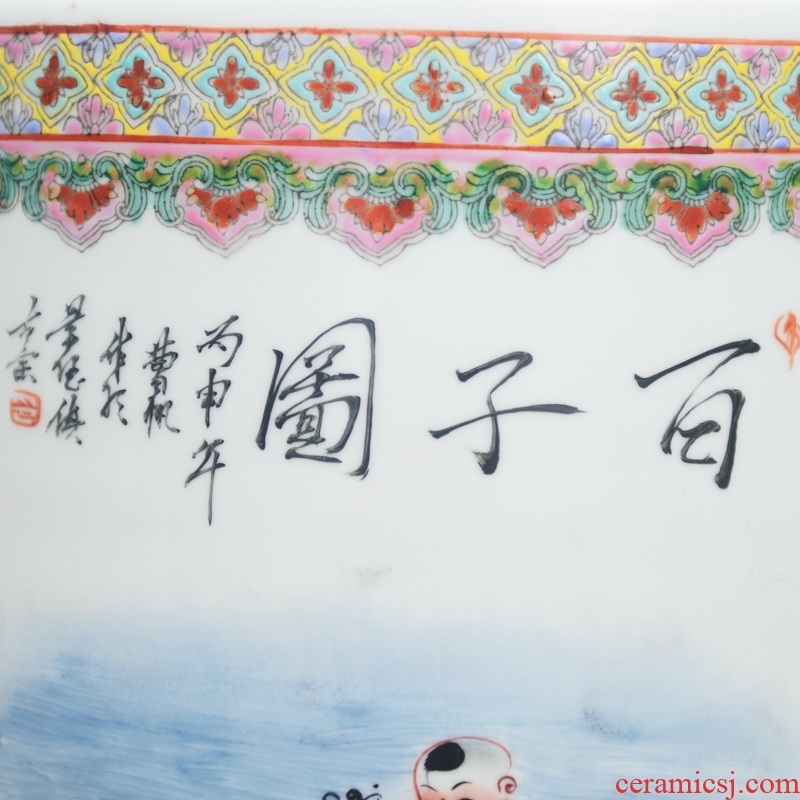 百子圖
丙申年
曹楓
作於
景德镇
ceramicsj.com